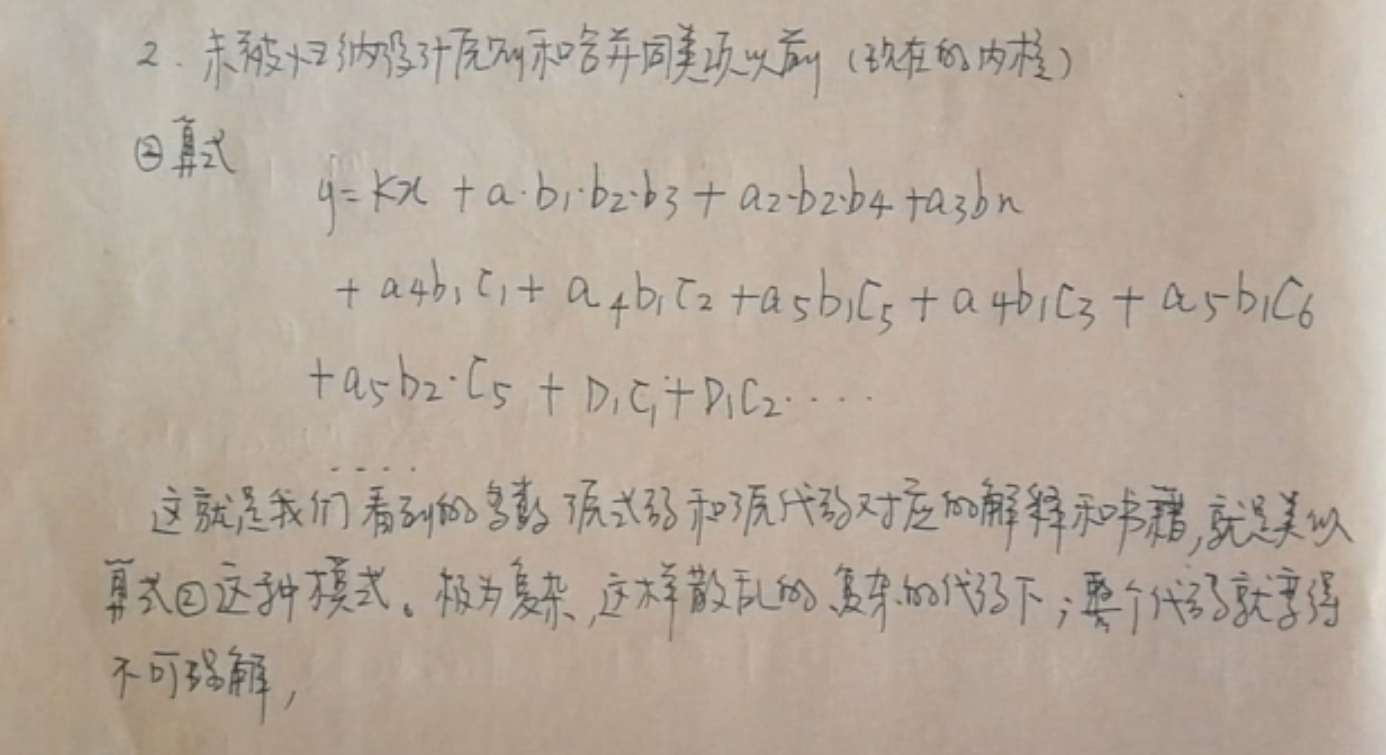 2. 未被归纳设计原则和合并同类项以前（现在的内核）
②算式
y=Kx + a·b₁·b₂·b₃ + a₂·b₂·b₄ + a₃bn
+ a₄b₁c₁ + a₄b₁c₂ + a₅b₁c₅ + a₄b₁c₃ + a₅b₁c₆
+ a₅b₂·c₅ + D₁c₁ + D₁c₂ ····
····
这就是我们看到的多数源代码和源代码对应的解释和书籍,就是类似
算式②这种模式。极为复杂,这样散乱的复杂的代码下；整个代码就变得
不可理解,